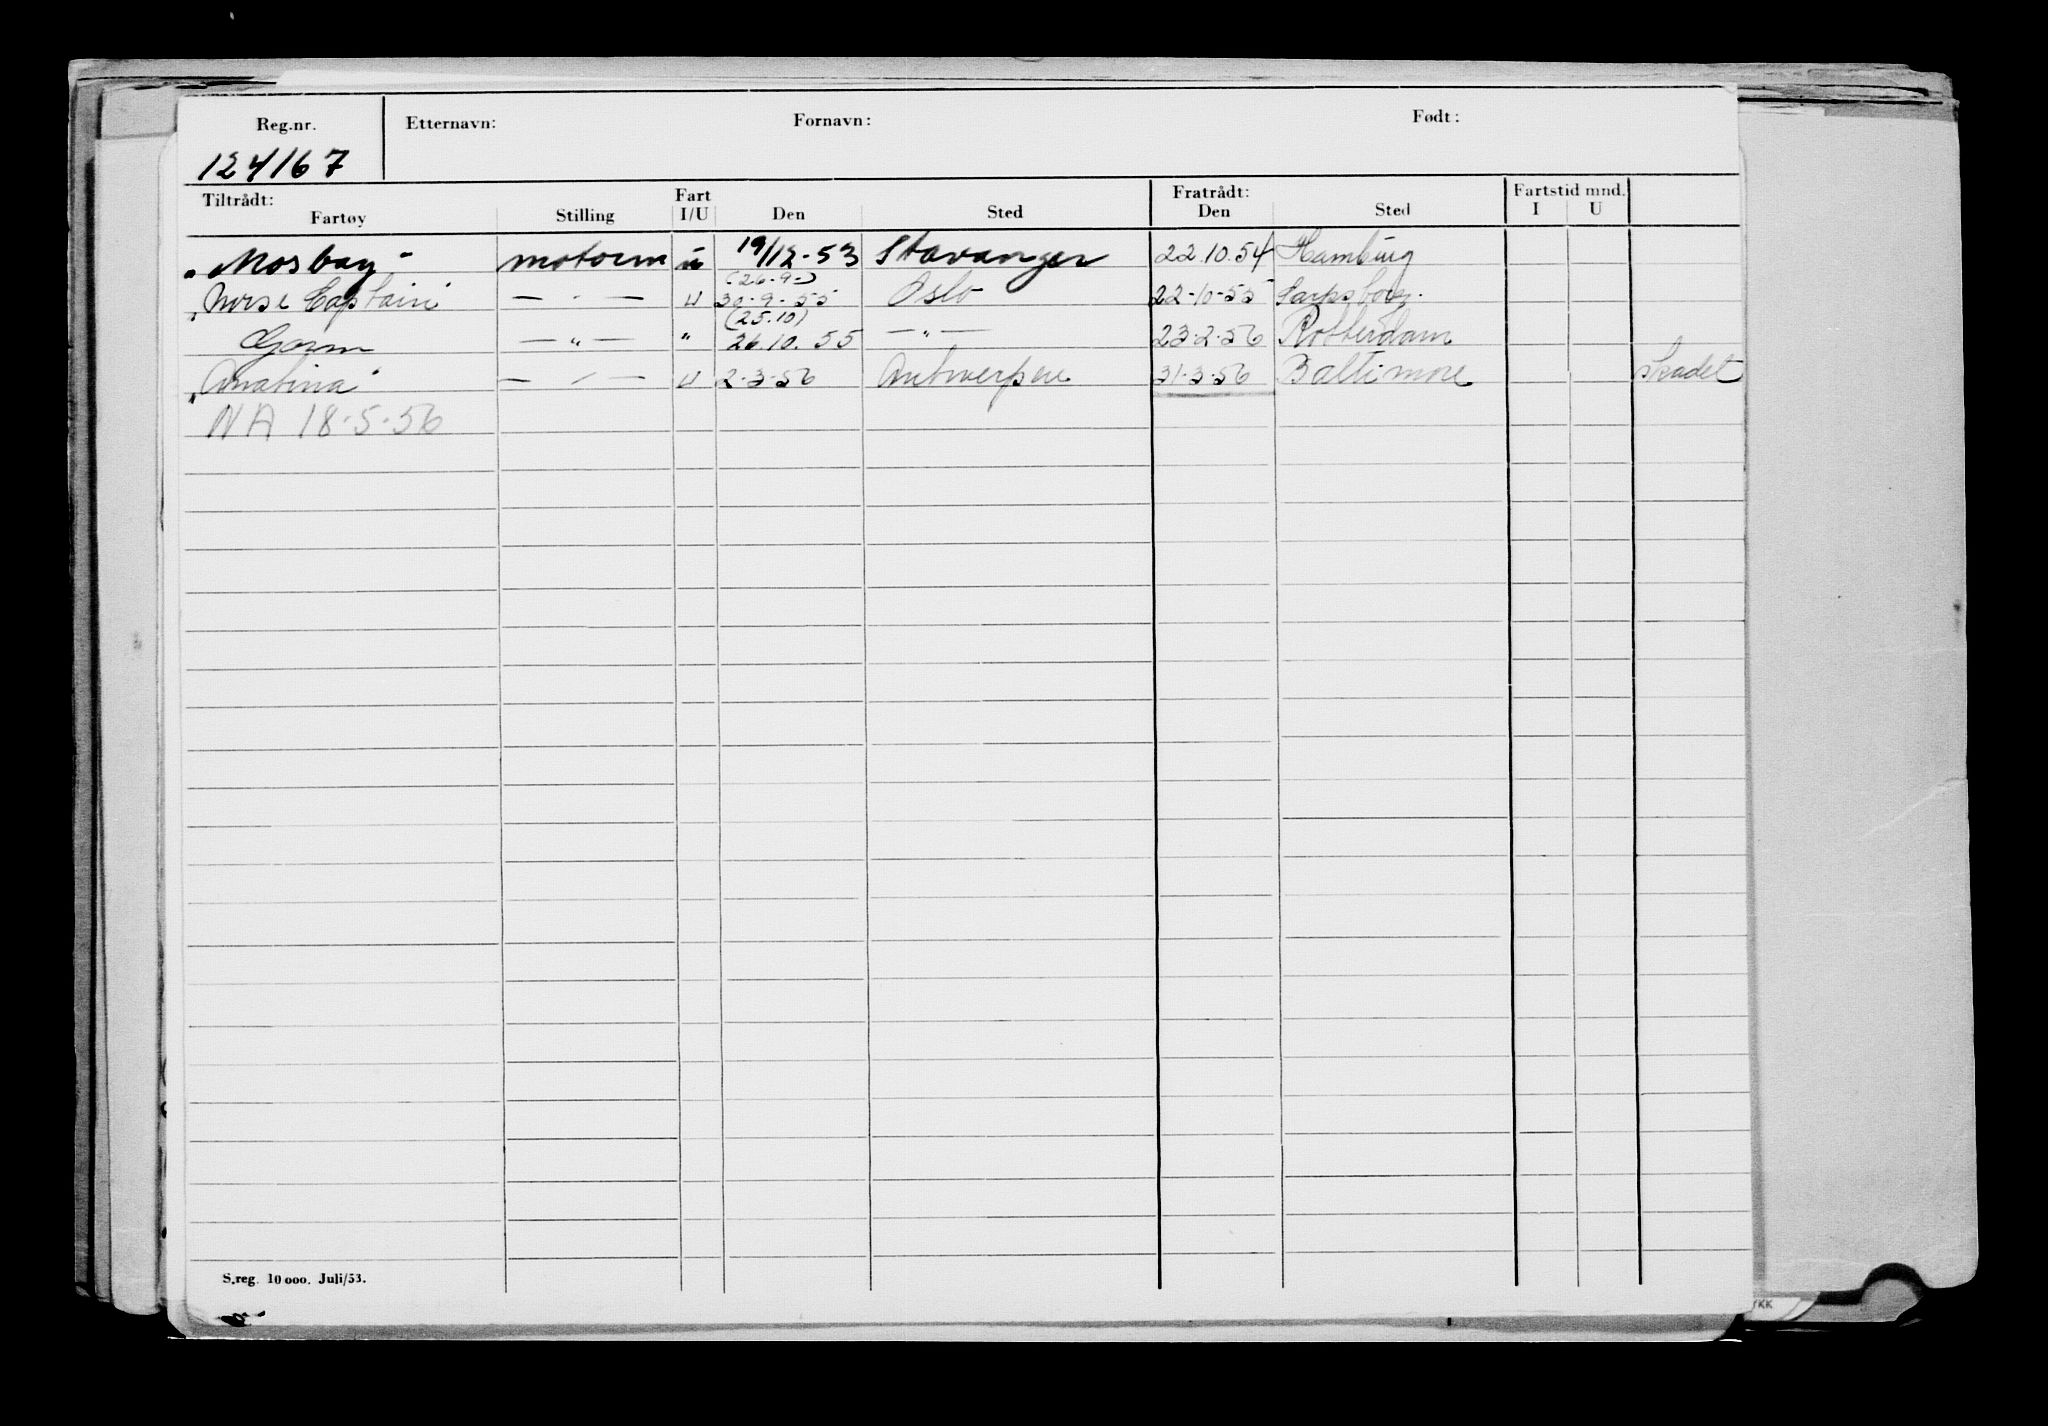 Reg.nr. Etternavn: Fornavn: Født:
124167
Tiltrådt: Fart Fratrådt: Fartstid mnd.
Fartøy Stilling I/U Den Sted Den Sted I U
"Mosbay" motorm u 19/12-53 Stavanger 22.10.54 Hamburg
(26-9-)
"Norse Captain" — " — u 30-9-55 Oslo 22-10-55 Sarpsborg.
(25.10)
Gorm — " — " 26.10.55 — " — 23-2-56 Rotterdam
— " — u 2-3-56 Antwerpen 31-3-56 Baltimore Skadet
NA 18-5-56
S.reg. 10 000. Juli/53.